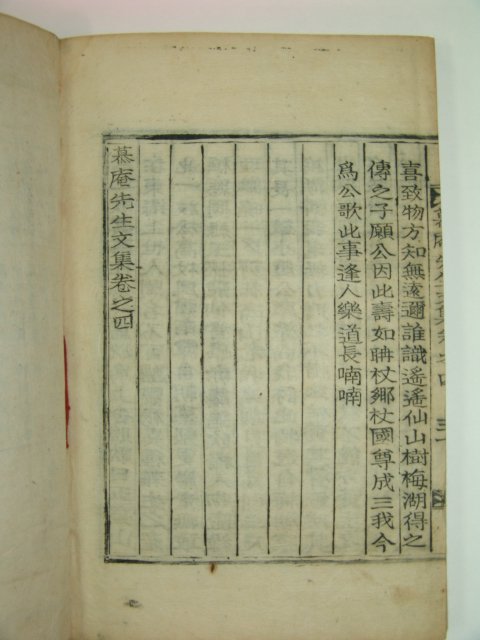 慕庵先生文集卷之四 三
喜致物方知無遠邇誰識遙遙仙山樹梅湖得之
傳之子願公因此壽如聃杖鄉杖國尊成三我今
爲公歌此事逢人樂道長喃喃
慕庵先生文集卷之四